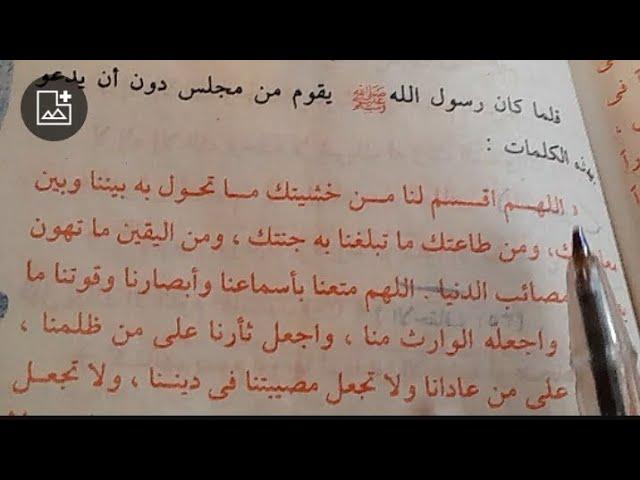 فلما كان رسول الله ﷺ يقوم من مجلس دون أن يدعو
بهذه الكلمات :
« اللهم اقسم لنا من خشيتك ما تحول به بيننا وبين
ومن طاعتك ما تبلغنا به جنتك ، ومن اليقين ما تهون
مصائب الدنيا . اللهم متعنا بأسماعنا وأبصارنا وقوتنا ما
واجعله الوارث منا ، واجعل ثأرنا على من ظلمنا ،
على من عادانا ولا تجعل مصيبتنا فى ديننا ، ولا تجعل